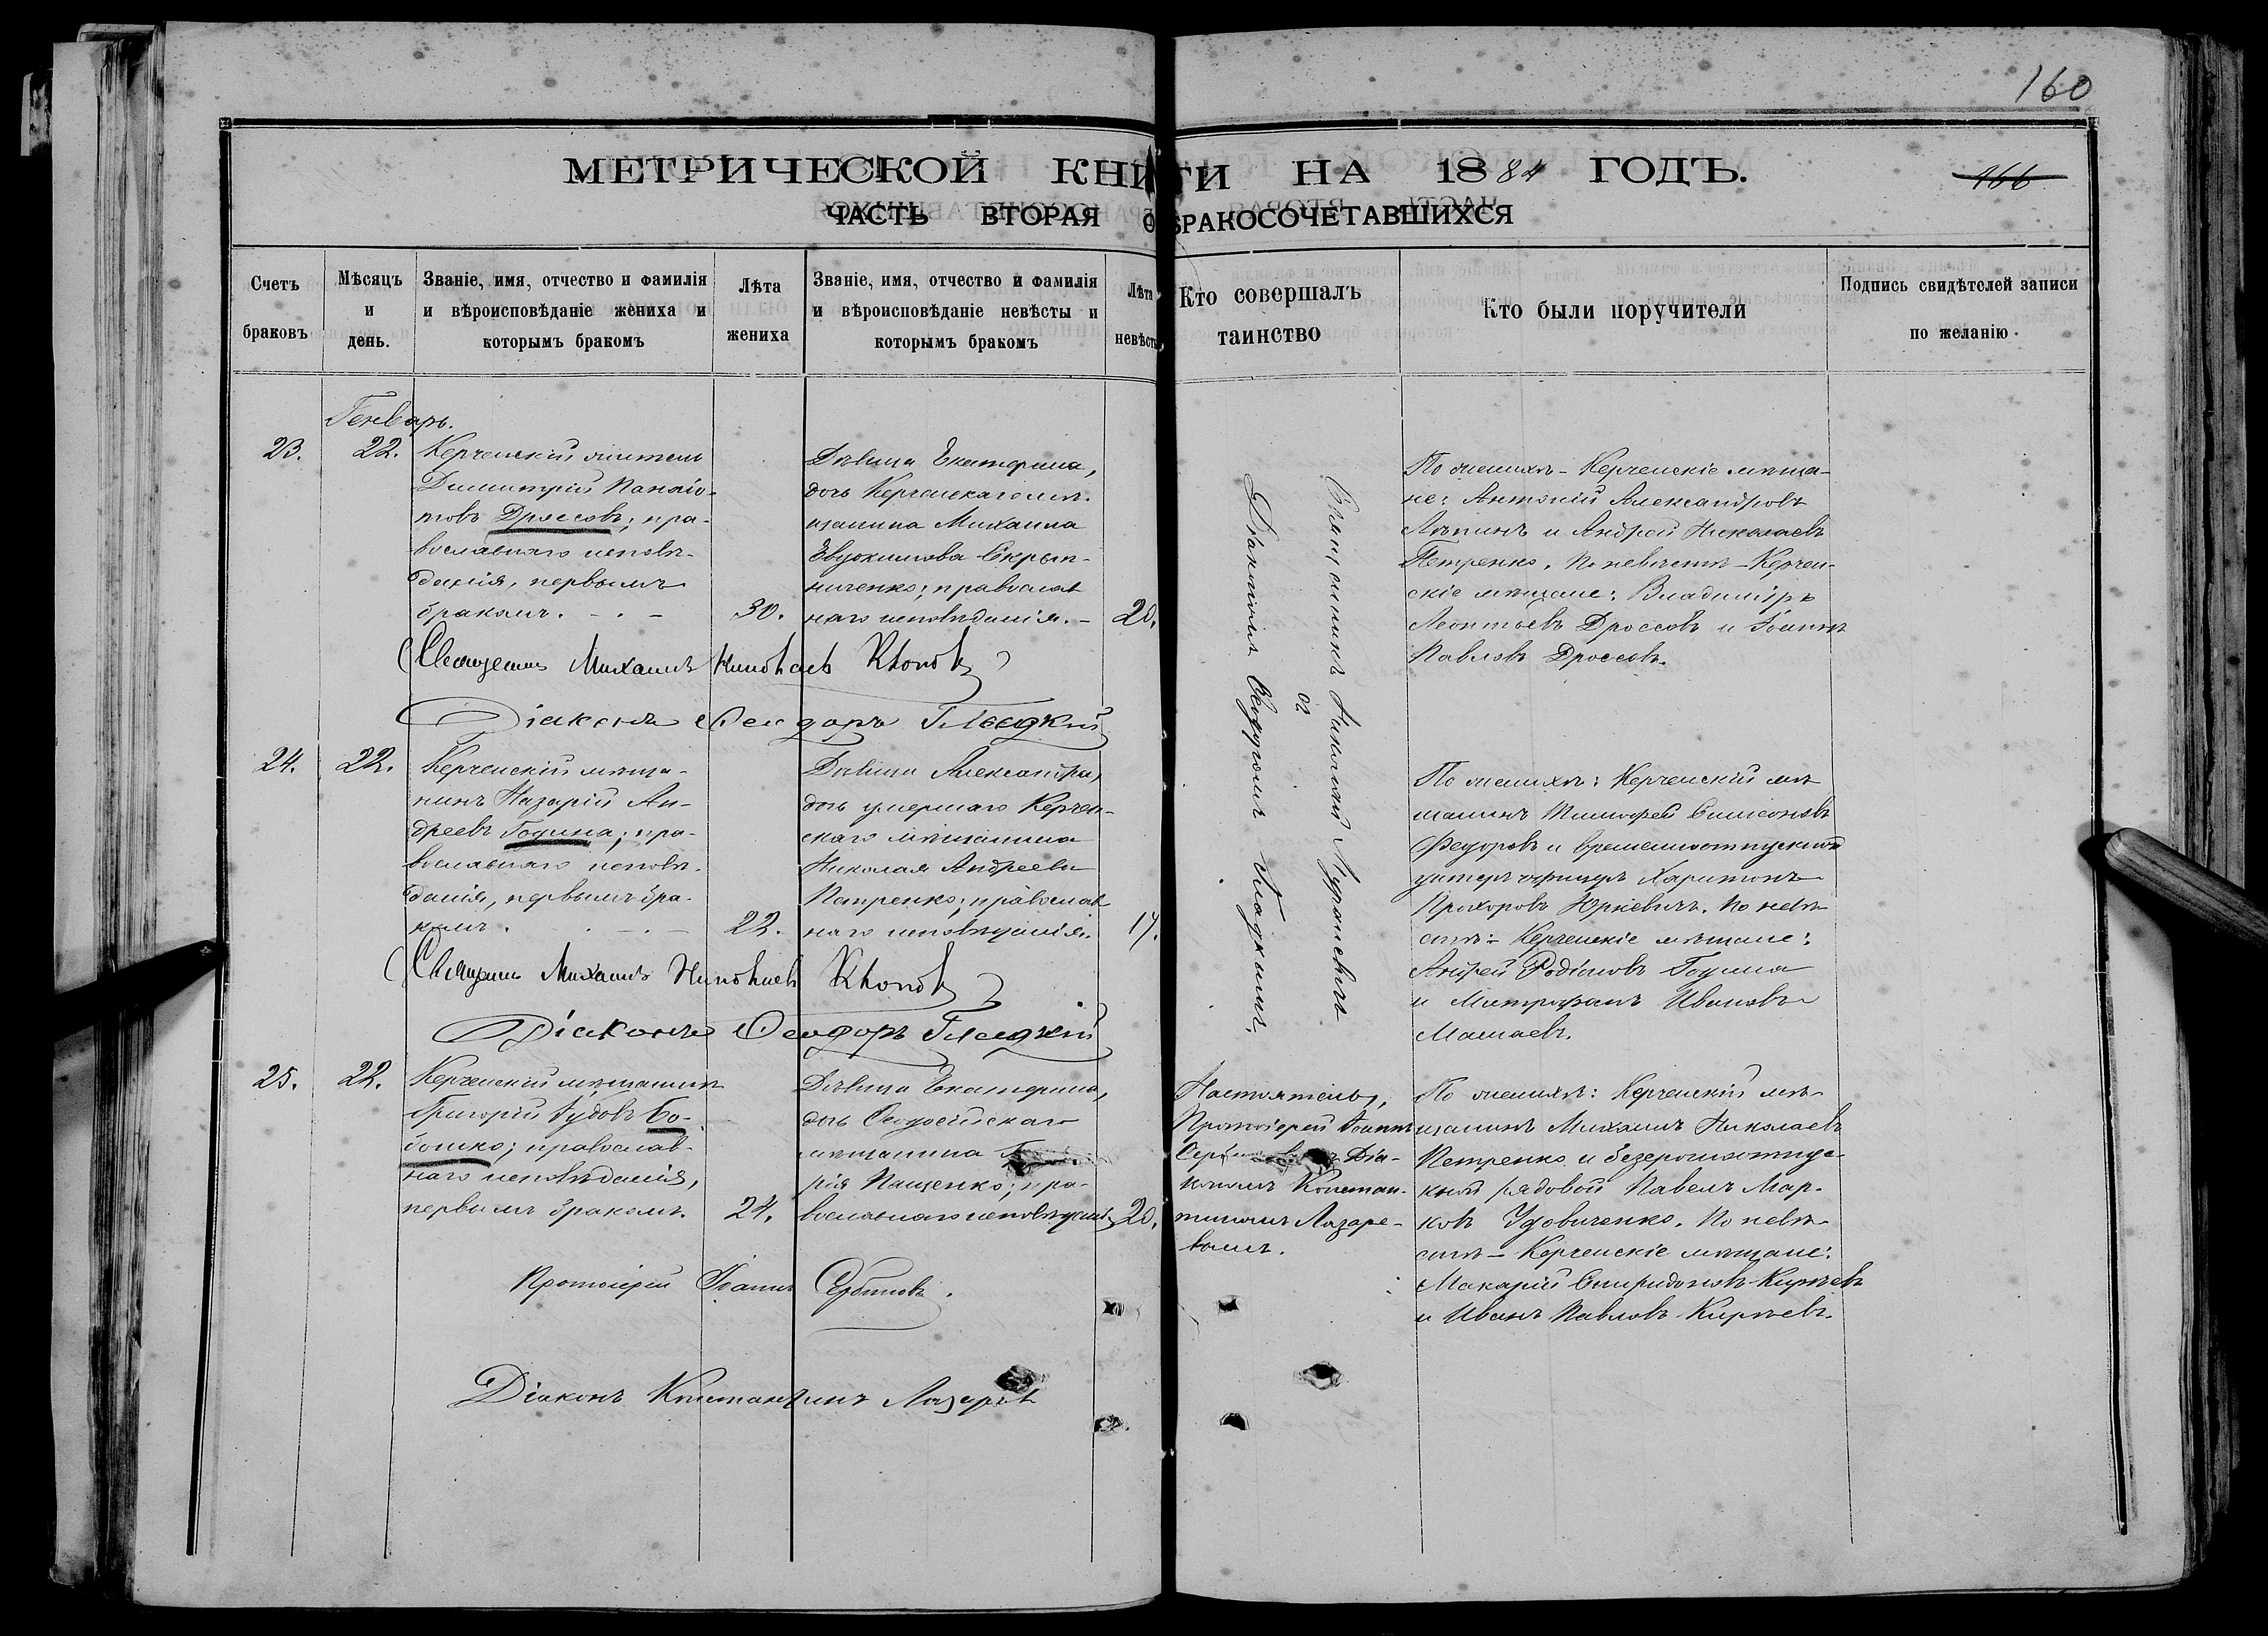 160
МЕТРИЧЕСКОЙ КНИГИ НА 1884 ГОДЪ.
166
ЧАСТЬ ВТОРАЯ О БРАКОСОЧЕТАВШИХСЯ
Счетъ
браковъ
Мѣсяцъ
и
день.
Званіе, имя, отчество и фамилія
и вѣроисповѣданіе жениха и
которымъ бракомъ
Лѣта
жениха
Званіе, имя, отчество и фамилія
и вѣроисповѣданіе невѣсты и
которымъ бракомъ
Лѣта
невѣсты
Кто совершалъ
таинство
Кто были поручители
Подпись свидѣтелей записи
по желанію.
Генварь.
23.
22.
Керченскій житель
Димитрій Панаіо-
товъ Дроссовъ; пра-
вославнаго исповѣ-
данія, первымъ
бракомъ. - . -
30.
Дѣвица Екатерина,
дочь Керченскаго мѣ-
щанина Михаила
Евдокимова Скрып-
ниченко; православ
наго исповѣданія. -
20.
Священникъ Николай
Діакономъ Ѳеодоромъ Гладкимъ.
По женихѣ - Керченскіе мѣща-
не: Антоній Александровъ
Ляпинъ и Андрей Николаевъ
Петренко. По невѣстѣ - Керчен-
скіе мѣщане: Владиміръ
Леонтьевъ Дроссовъ и Іоаннъ
Павловъ Дроссовъ.
Священникъ Михаилъ
Діаконъ Ѳеодоръ Гладкій
24.
22.
Керченскій мѣща-
нинъ Назарій Ан-
дреевъ Година; пра-
вославнаго исповѣ-
данія, первымъ бра-
комъ. . - . -
22.
Дѣвица Александра,
дочь умершаго Керчен-
скаго мѣщанина
Николая Андреева
Петренко; православ
наго исповѣданія.
17.
По женихѣ: Керченскій мѣ
щанинъ Тимофей Симеоновъ
Федоровъ и временноотпускной
унтеръ офицеръ Харитонъ
Прохоровъ Юркевичъ. По невѣ
стѣ - Керченскіе мѣщане:
Андрей Родіоновъ Година
и Митрофанъ Ивановъ
Машаевъ.
Священникъ Михаилъ
Діаконъ Ѳеодоръ Гладкій
25.
22.
Керченскій мѣщанинъ
Григорій Іудовъ Бо-
бошко; православ-
наго исповѣданія,
первымъ бракомъ.
24.
Дѣвица Екатерина,
дочь Ѳеодосійскаго
мѣщанина
рія Пащенко; пра-
вославнаго исповѣданія
20.
Настоятель,
Протоіерей Іоаннъ
Діа-
кономъ Констан-
тиномъ Лазаре-
вымъ.
По женихѣ: Керченскій мѣ-
щанинъ Михаилъ Николаевъ
Петренко и безсрочноотпус-
кной рядовой Павелъ Мар-
ковъ Удовиченко. По невѣ-
стѣ - Керченскіе мѣщане:
Макарій Спиридоновъ Кирѣевъ
и Иванъ Павловъ Кирѣевъ.
Протоіерей Іоаннъ Сербиновъ.
Діаконъ Константинъ Лазаревъ